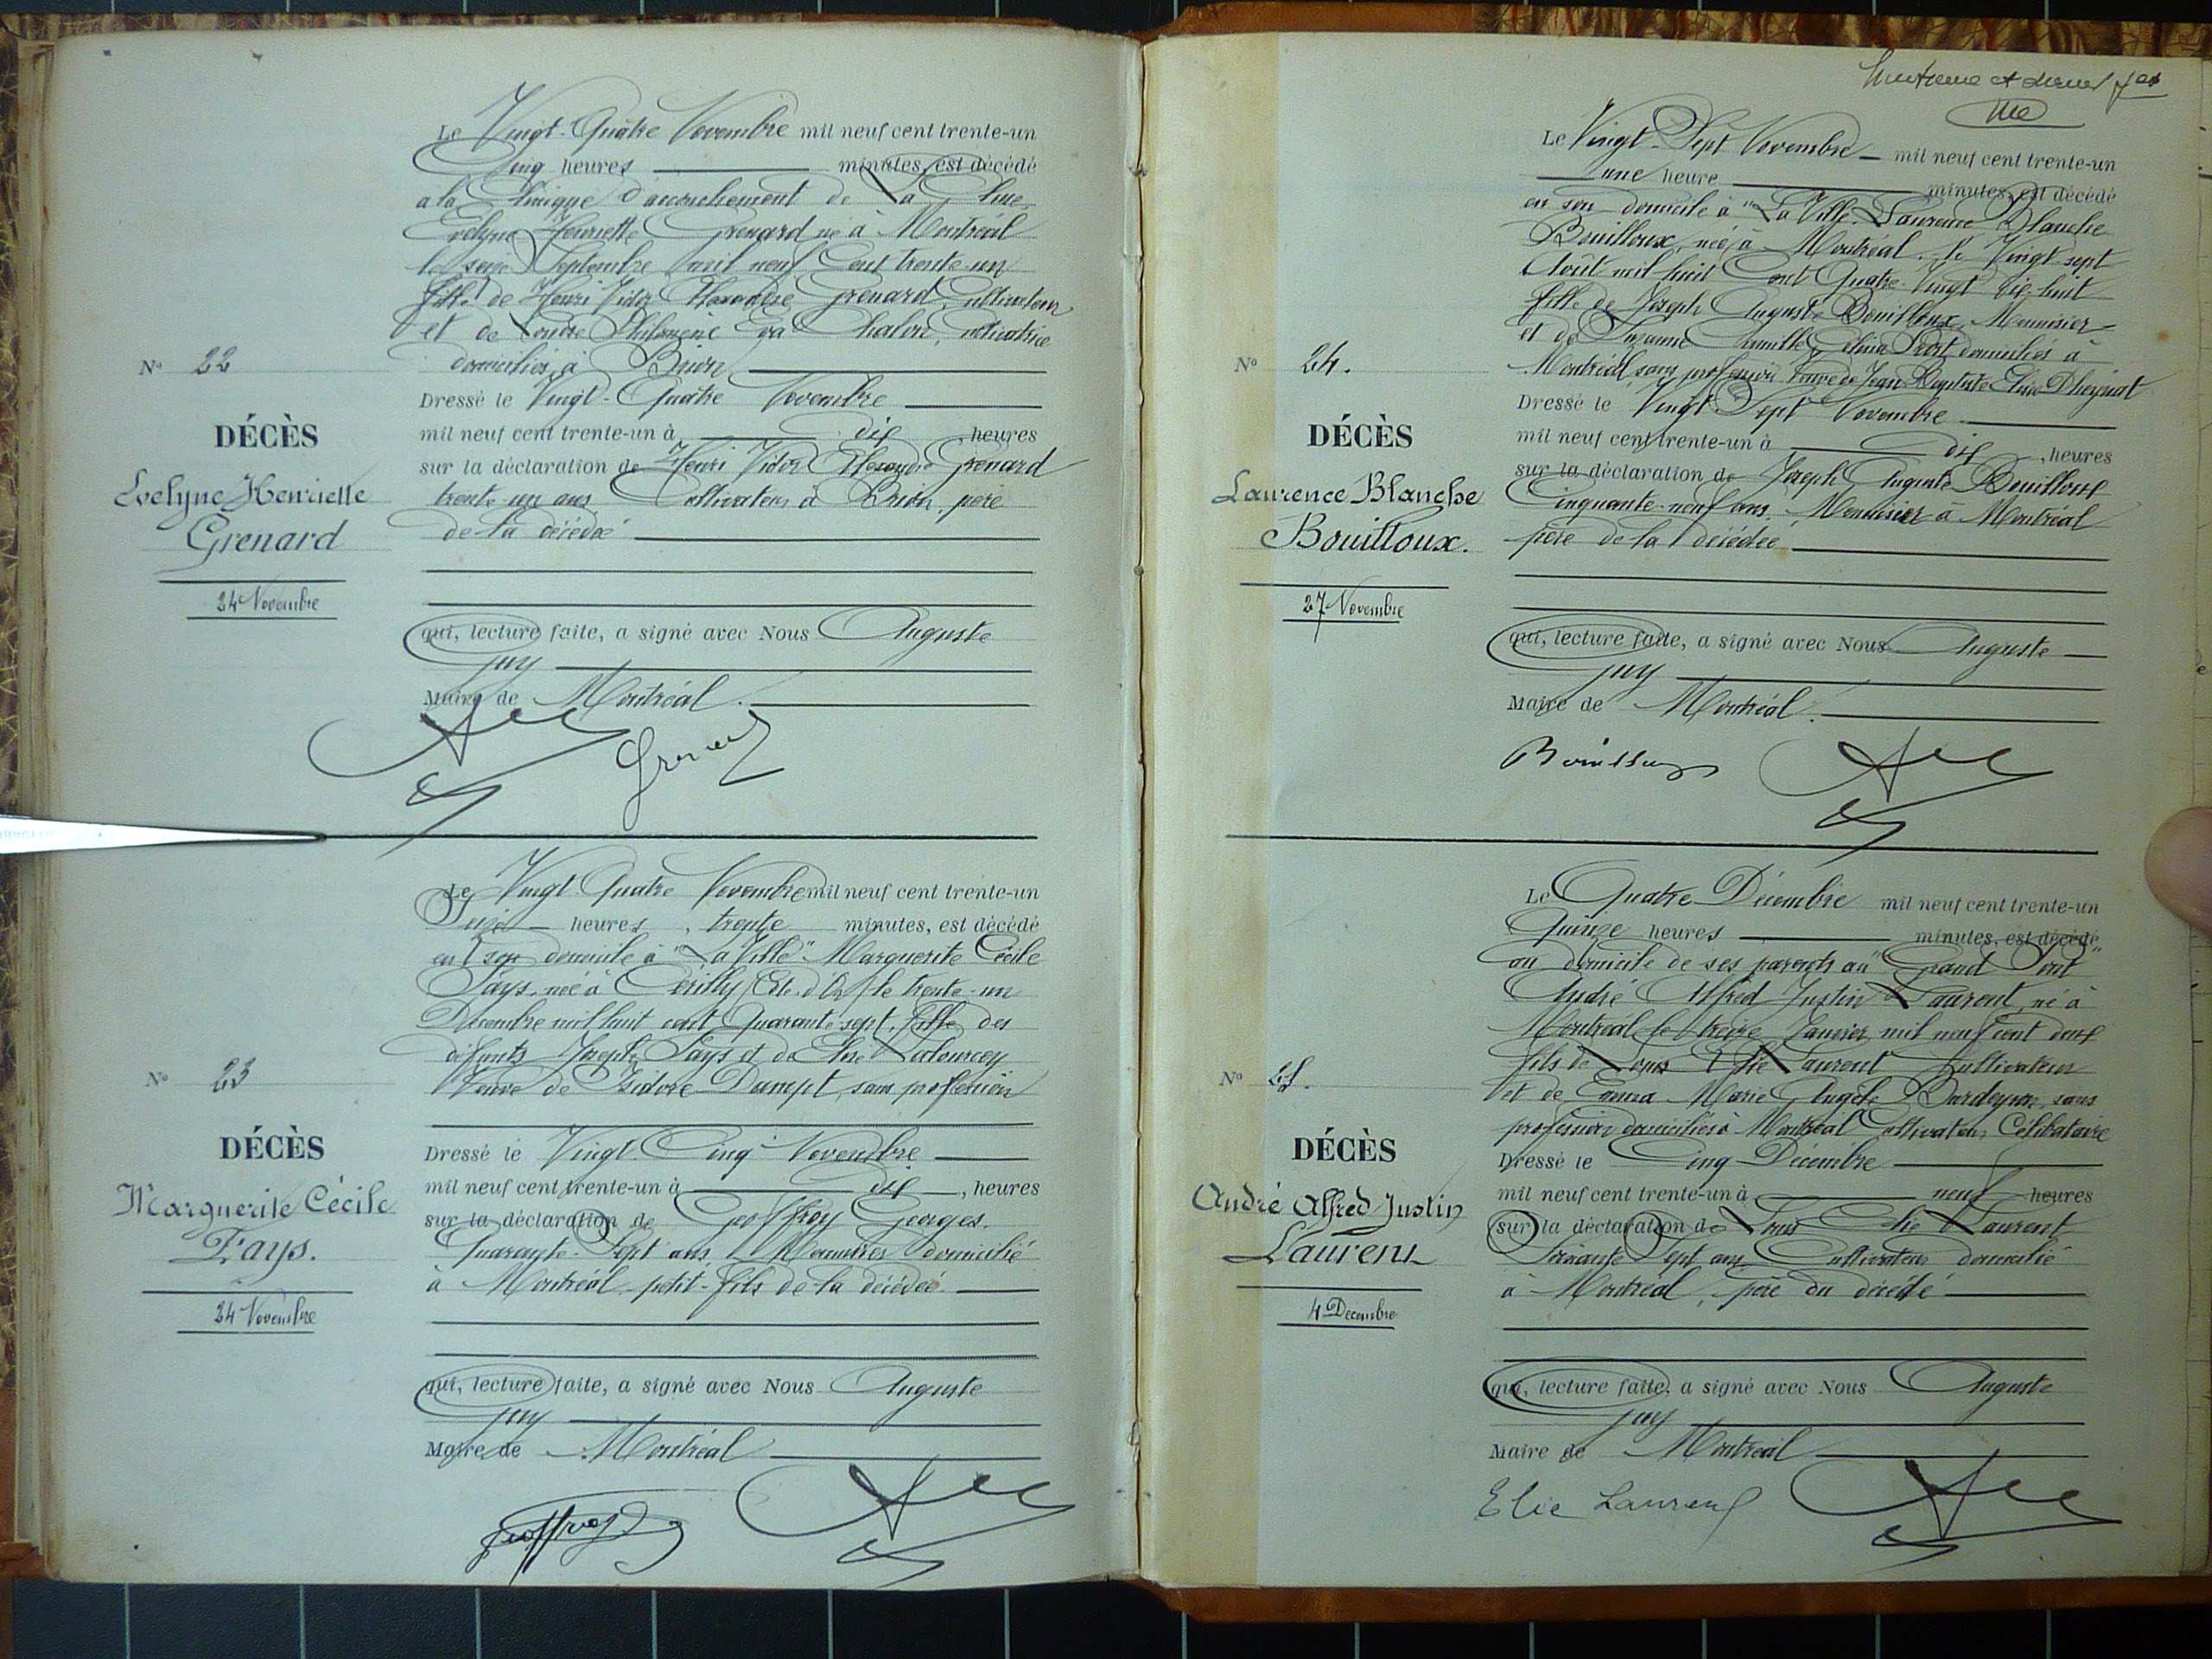 Le Vingt-Quatre Novembre mil neuf cent trente-un
Cinq heures minutes, est décédé
à la Clinique d'accouchement de La Cluse
Evelyne Henriette Grenard né à Montréal
le seize Septembre mil neuf Cent trente-un
fille de Henri Victor Alexandre Grenard, Cultivateur
et de Philomène Eva Chalon, cultivatrice
domiciliés à Brion
Nº 22
DÉCÈS
Evelyne Henriette
Grenard
24 Novembre
Dressé le Vingt-Quatre Novembre
mil neuf cent trente-un à dix heures
sur la déclaration de Henri Victor Alexandre Grenard
trente-un ans Cultivateur à Brion, père
de la décédée
qui, lecture faite, a signé avec Nous Auguste
Juy
Maire de Montréal.
Grenard
Le Vingt-Quatre Novembre mil neuf cent trente-un
Seize heures, trente minutes, est décédé
en son domicile à "La Ville" Marguerite Cécile
Pays, née à Cérilly (Cte d'Or) le trente-un
Décembre mil huit cent Quarante-sept, fille des
défunts Joseph Pays et de Elise Latourcey
Veuve de Isidore Dampt, sans profession
Nº 23
DÉCÈS
Marguerite Cécile
Pays.
24 Novembre
Dressé le Vingt-Cinq Novembre
mil neuf cent trente-un à dix, heures
sur la déclaration de Geoffroy Georges.
Quarante-Sept ans, domicilié
à Montréal petit-fils de la décédée.
qui, lecture faite, a signé avec Nous Auguste
Juy
Maire de Montréal
Geoffroy
Le Vingt-Sept Novembre mil neuf cent trente-un
une heure minutes, est décédé
en son domicile à "La Ville" Laurence Blanche
Bouilloux, née à Montréal, le Vingt sept
Août mil huit Cent Quatre-Vingt dix huit
fille de Joseph Auguste Bouilloux, Menuisier
et de Suzanne Camille Célina Prost, domiciliés à
Montréal sans profession Veuve de Jean Baptiste
Nº 24.
DÉCÈS
Laurence Blanche
Bouilloux.
27 Novembre
Dressé le Vingt-Sept Novembre
mil neuf cent trente-un à dix, heures
sur la déclaration de Joseph Auguste Bouilloux
Cinquante-neuf ans, Menuisier à Montréal
père de la décédée
qui, lecture faite, a signé avec Nous Auguste
Juy
Maire de Montréal.
Bouilloux
Le Quatre Décembre mil neuf cent trente-un
Quinze heures minutes, est décédé
au domicile de ses parents au "Grand Pont"
André Alfred Justin Laurent, né à
Montréal le treize Janvier mil neuf cent
fils de Louis Elie Laurent Cultivateur
et de Emma Marie Angèle sans
profession domiciliés à Montréal Cultivateur, Célibataire
Nº 25.
DÉCÈS
André Alfred Justin
Laurent
4 Décembre
Dressé le Cinq Décembre
mil neuf cent trente-un à neuf heures
sur la déclaration de Louis Elie Laurent
Soixante Sept ans Cultivateur domicilié
à Montréal, père du décédé
qui, lecture faite, a signé avec Nous Auguste
Juy
Maire de Montréal
Elie Laurent